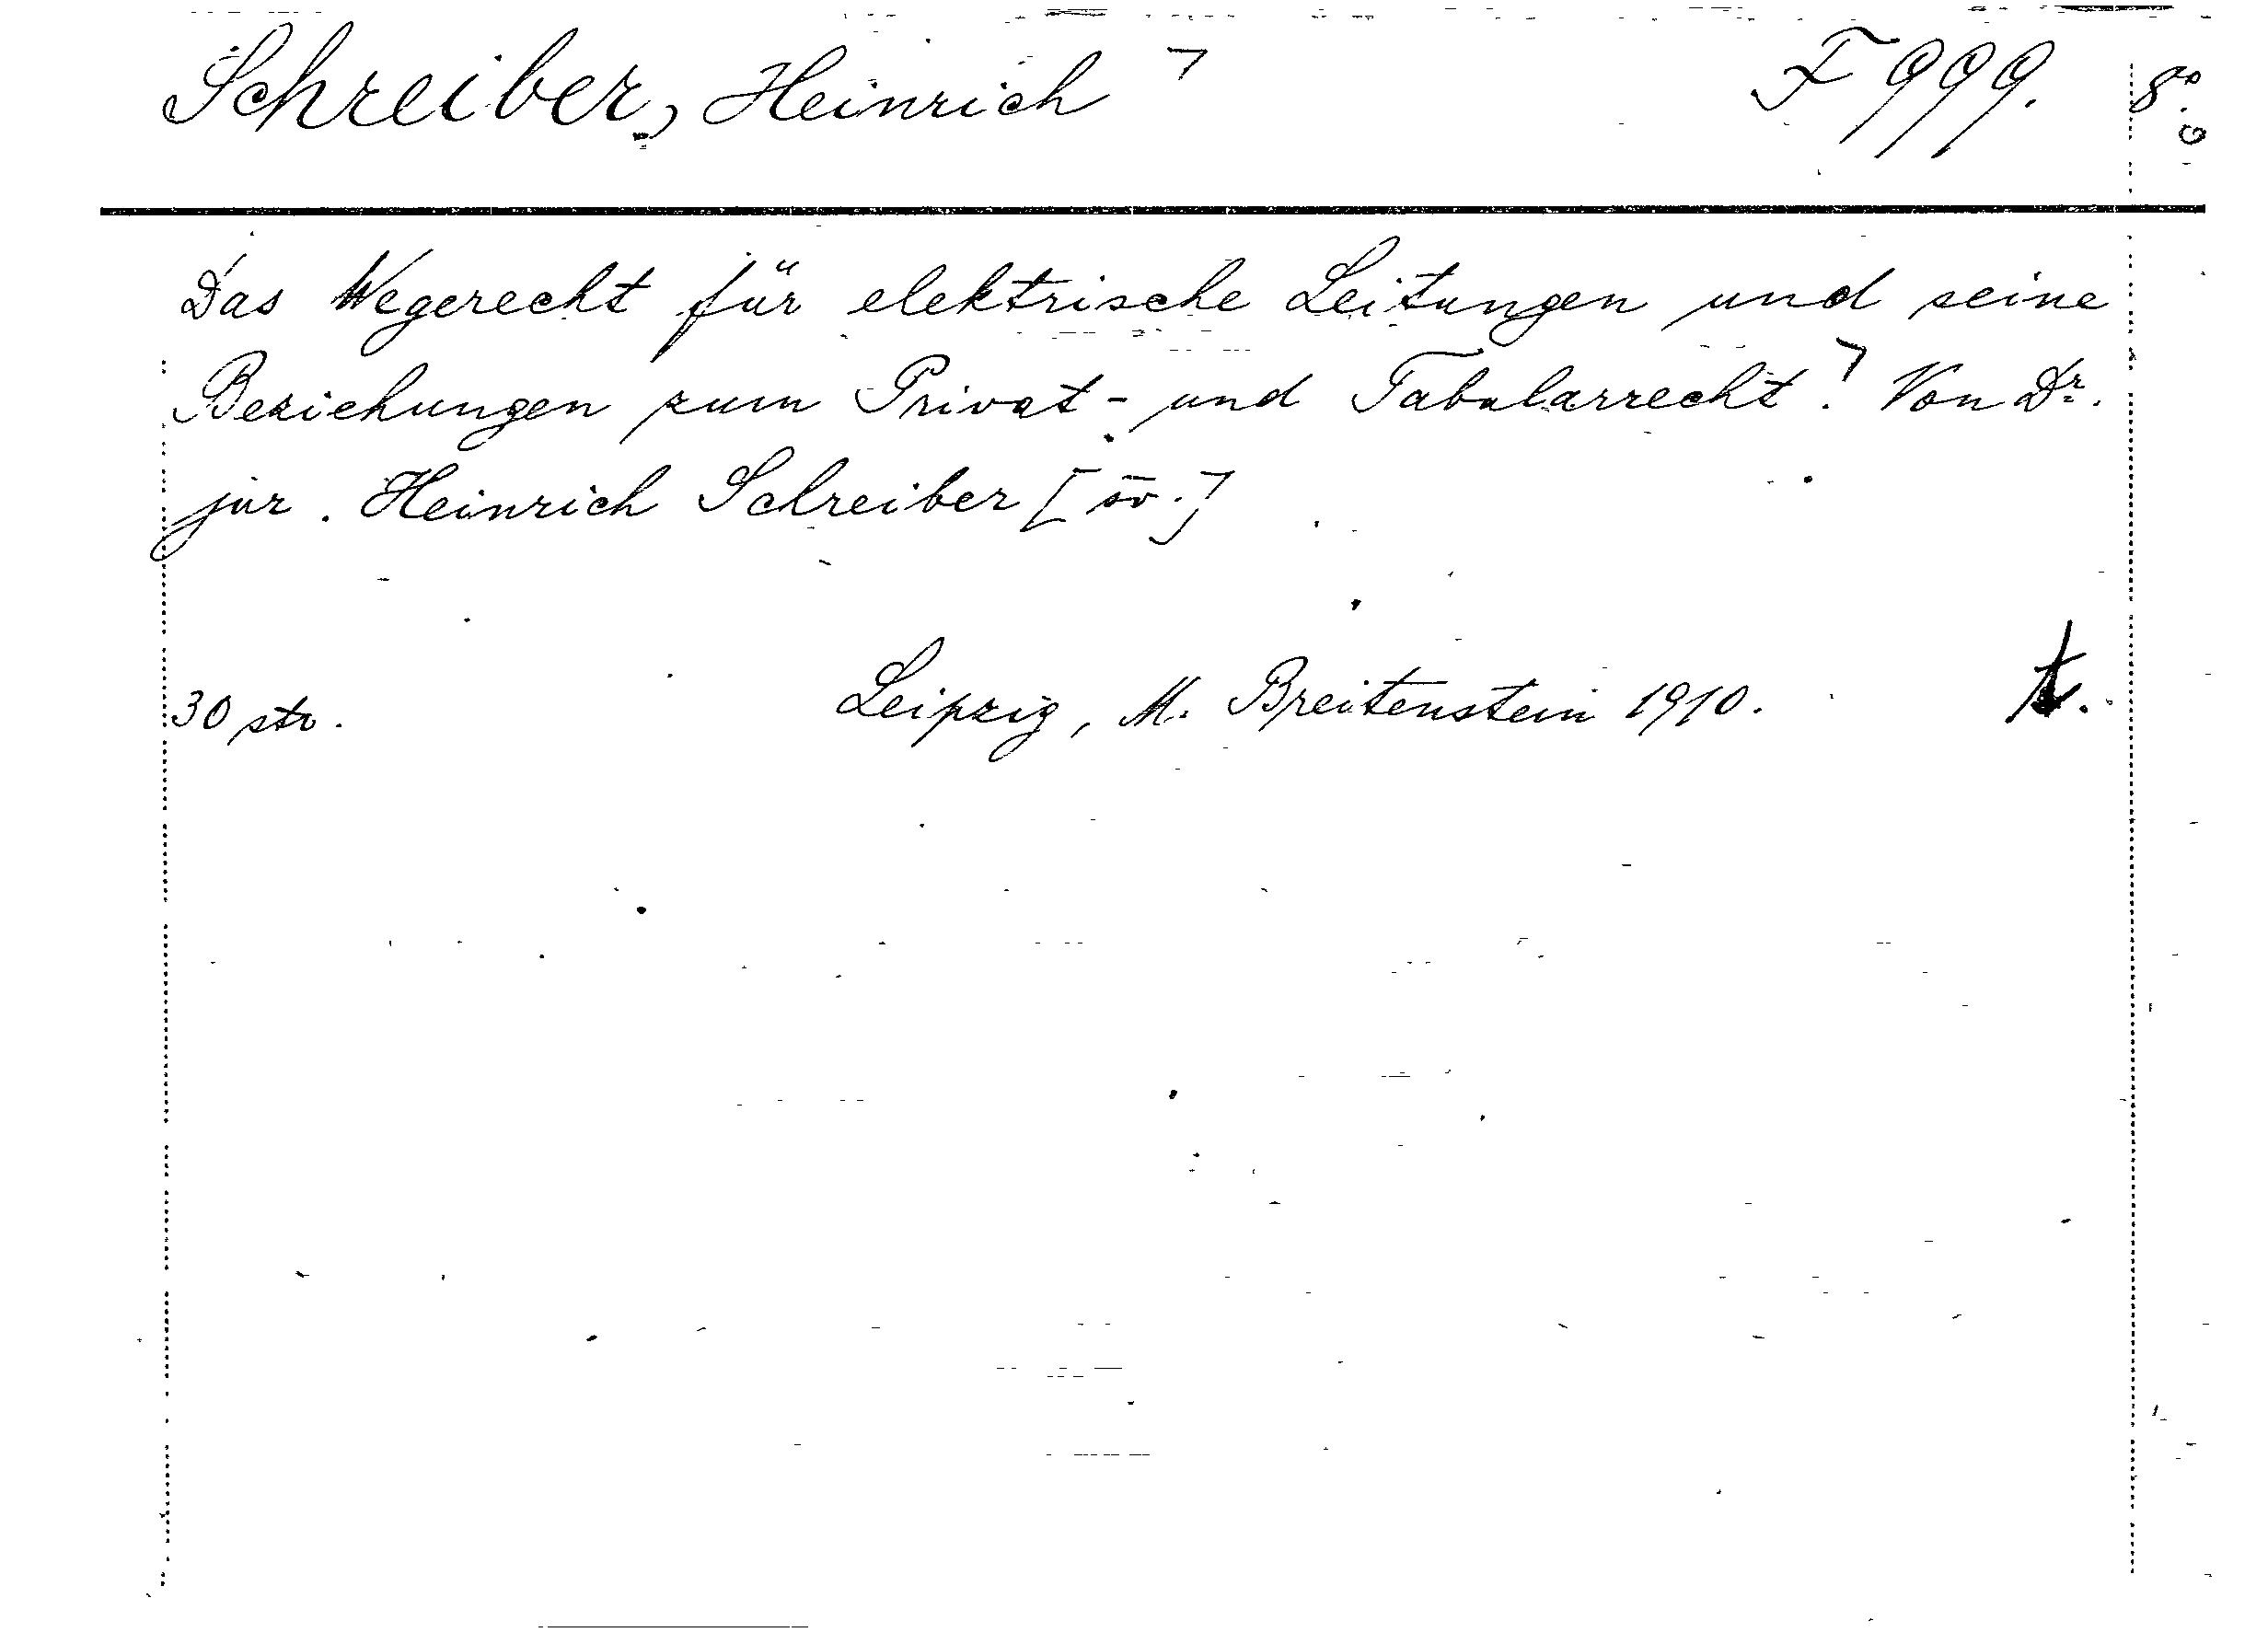 Schreiber, Heinrich F 999. 8º.
Das Wegerecht für elektrische Leitungen und seine
Beziehungen zum Privat- und Tabularrecht. Von Dr.
jur. Heinrich Schreiber [sv.]
30 str. Leipzig, M. Breitenstein 1910.